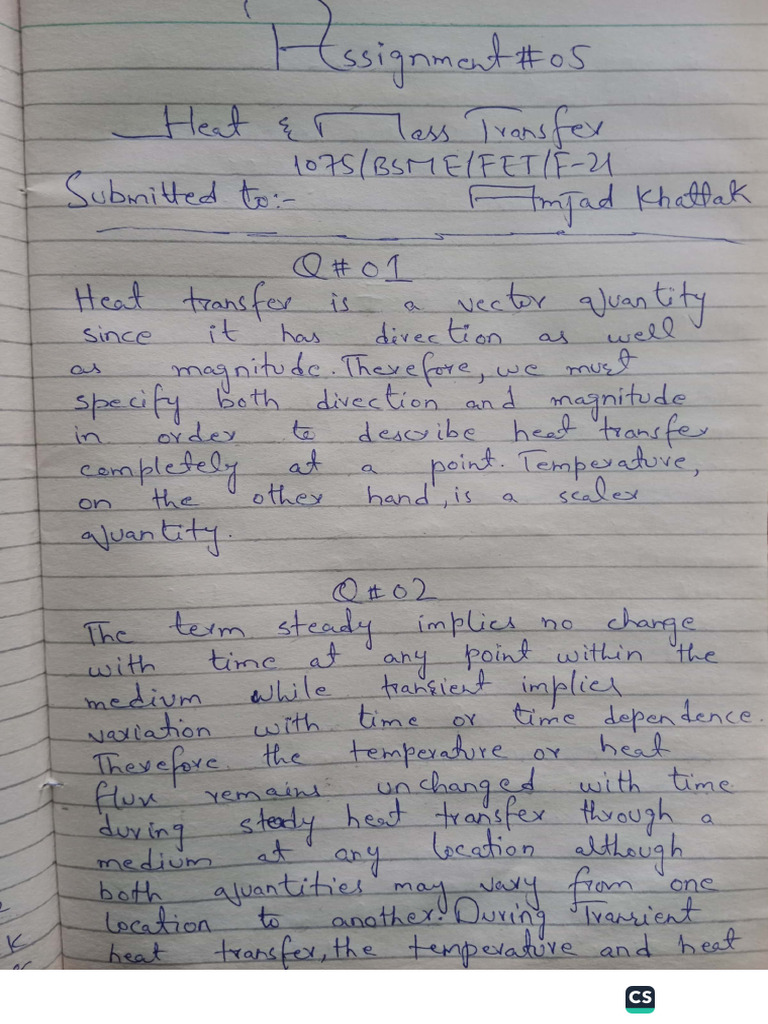 Assignment #05
Heat & Mass Transfer
1075/BSME/FET/F-21
Submitted to:- Amjad Khattak
Q#01
Heat transfer is a vector quantity
since it has direction as well
as magnitude. Therefore, we must
specify both direction and magnitude
in order to describe heat transfer
completely at a point. Temperature,
on the other hand, is a scaler
quantity.
Q#02
The term steady implies no change
with time at any point within the
medium while transient implies
variation with time or time dependence.
Therefore the temperature or heat
flux remains unchanged with time
during steady heat transfer through a
medium at any location although
both quantities may vary from one
location to another. During Transient
heat transfer, the temperature and heat
K
CS